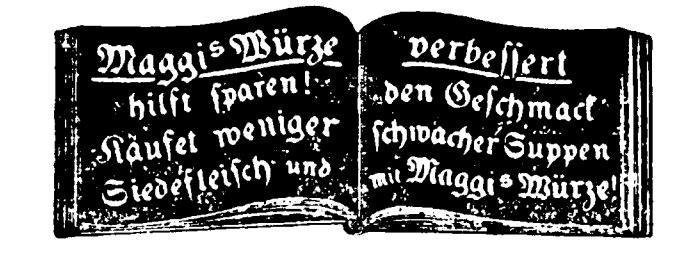 Maggis Würze
hilft sparen!
Käufet weniger
Siedefleisch und
verbessert
den Geschmack
schwacher Suppen
mit Maggis Würze!